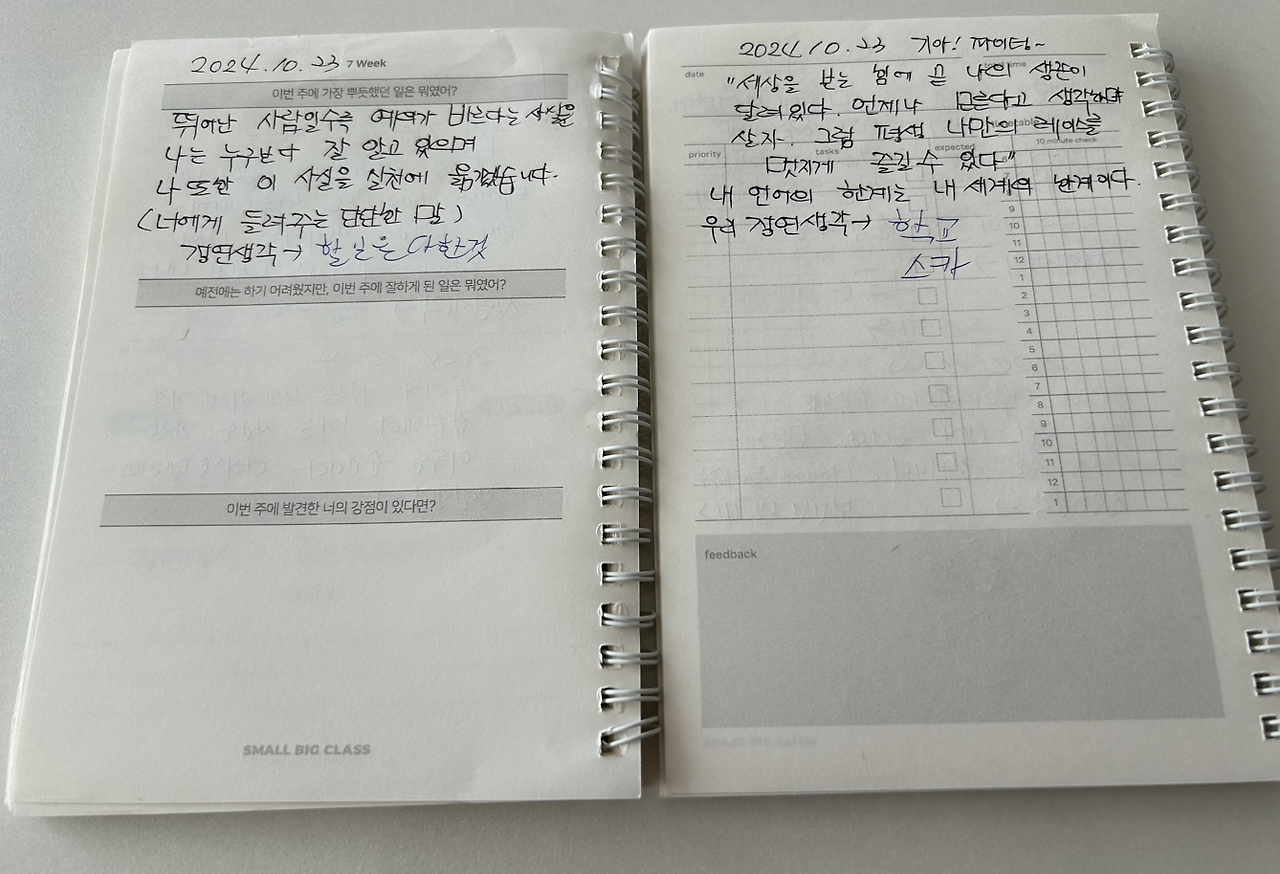 2024.10.23 7 Week
이번 주에 가장 뿌듯했던 일은 뭐였어?
뛰어난 사람일수록 예의가 바르다는 사실을
나는 누구보다 잘 알고 있으며
나 또한 이 사실을 실천에 옮기겠습니다.
(너에게 들려주는 단단한 말)
정연생각→ 할일은 다한것
예전에는 하기 어려웠지만, 이번 주에 잘하게 된 일은 뭐였어?
이번 주에 발견한 너의 강점이 있다면?
SMALL BIG CLASS
2024.10.23 기아! 파이팅~
date
time
"세상을 보는 힘에 끝 나의 생존이
달려있다. 언제나 모른다고 생각하며
살자. 그럼 평생 나만의 레이스를
priority tasks expected 10 minute check
멋지게 즐길 수 있다"
내 언어의 한계는 내 세계의 한계이다.
우리 정연생각→ 학교
스카
9
10
11
12
1
2
3
4
5
6
7
8
9
10
11
12
1
feedback